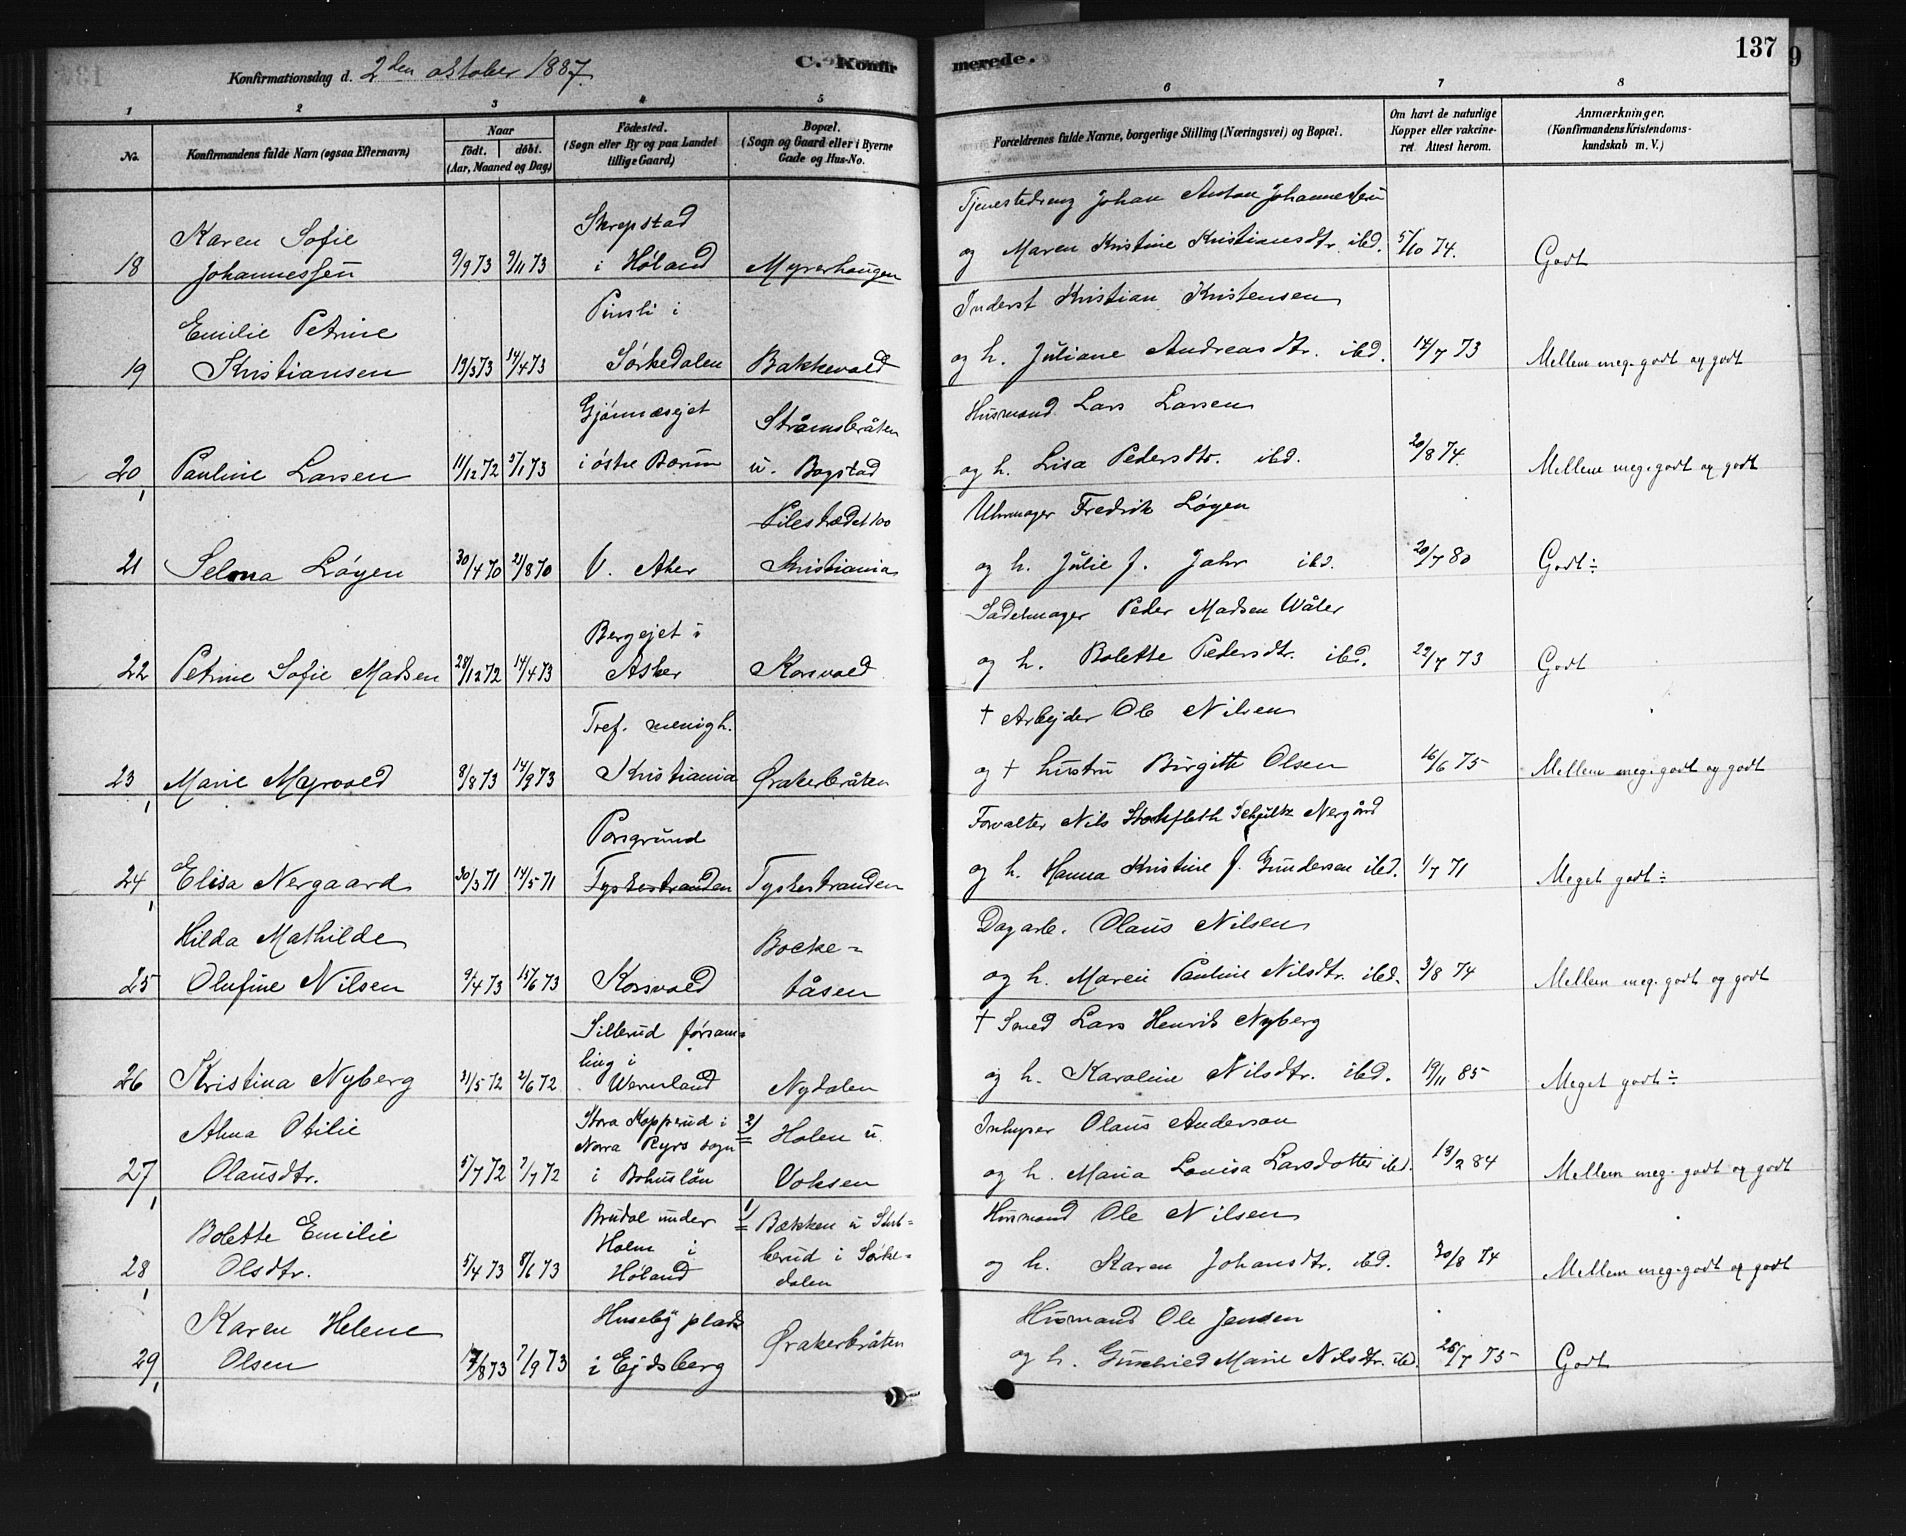 Konfirmationsdag d. 2den oktober 1887.
C. Konfir
merede.
137
1 2 3 4 5 6 7 8
No.
Konfirmandens fulde Navn (ogsaa Efternavn)
Naar
født. døbt.
(Aar, Maaned og Dag)
Fødested.
(Sogn eller By og paa Landet
tillige Gaard)
Bopæl.
(Sogn og Gaard eller i Byerne
Gade og Hus-No.
Forældrenes fulde Navne, borgerlige Stilling (Næringsvei) og Bopæl.
Om havt de naturlige
Kopper eller vakcine-
ret Attest herom.
Anmærkninger.
(Konfirmandens Kristendoms-
kundskab m. V.)
Skrepstad Tjenestedreng Johan Anton Johannessen
Karen Sofie
18 Johannessen 9/9 73 9/11 73 i Høland Myrerhaugen og Maren Kristine Kristiansdtr. ibd. 5/10 74. Godt
Emilie Petrine Pinsli i Inderst Kristian Kristensen
19 Kristiansen 13/3 73 14/4 73 Sørkedalen Bakkevold og h. Juliane Andreasdtr. ibd. 14/7 73 Mellem meg. godt og godt
Gjønnæsejet Strømsbråten Husmand Lars Larsen
20 Pauline Larsen 11/12 72 5/1 73 i østre Bærum u. Bogstad og h. Lisa Pedersdtr. ibd. 20/8 74. Mellem meg. godt og godt
Pilestrædet 100 Uhrmager Fredrik Løyen
21 Selma Løyen 30/4 70 21/8 70 V. Aker Kristiania og h. Julie f. Jahr ibd. 20/7 80 Godt ÷
Bergejet i Sadelmager Peder Madsen Wåler
22 Petrine Sofie Madsen 28/12 72 14/4 73 Asker Korsvold og h. Bolette Pedersdtr. ibd. 22/7 73 Godt
Tref. menigh. † Arbejder Ole Nilsen
23 Marie Myrvold 8/8 73 14/9 73 Kristiania Ørakerbråten og † hustru Birgitte Olsen 16/6 75 Mellem meg. godt og godt
Porsgrund Forvalter Nils Stockfleth Schultz Nergård
24 Elisa Nergaard 30/3 71 14/5 71 Tyskestranden Tyskestranden og h. Hanna Kristine f. Gundersen ibd. 1/7 71 Meget godt ÷
Hilda Mathilde Bocke- Dagarb. Olaus Nilsen
25 Olufine Nilsen 9/4 73 15/6 73 Korsvold tåsen og h. Maren Pauline Nilsdtr. ibd. 3/8 74 Mellem meg. godt og godt
Sillerud forsam- † Smed Lars Henrik Nyberg
ling i
26 Kristina Nyberg 21/5 72 2/6 72 Wermland Nydalen og h. Karoline Nilsdtr. ibd. 19/11 85 Meget godt ÷
Alma Otilie Stora Kopperud i 2) Holen u. Inhyser Olaus Anderson
Norra Ryrs sogn
27 Olausdtr. 5/7 72 7/7 72 i Bohuslän Voksen og h. Maria Lovisa Larsdotter ibd. 13/2 84 Mellem meg. godt og godt
Bolette Emilie Brudal under 1) Bakken u Stub- Husmand Ole Nilsen
Holm i berud i Sørke-
28 Olsdtr. 5/4 73 8/6 73 Høland dalen og h. Karen Johansdtr. ibd. 30/8 74 Mellem meg. godt og godt
Karen Helene Huseby plads Ørakerbråten Husmand Ole Jensen
29 Olsen 17/8 73 7/9 73 i Ejdsberg og h. Gunhild Marie Nilsdtr. ibd. 26/7 75 Godt